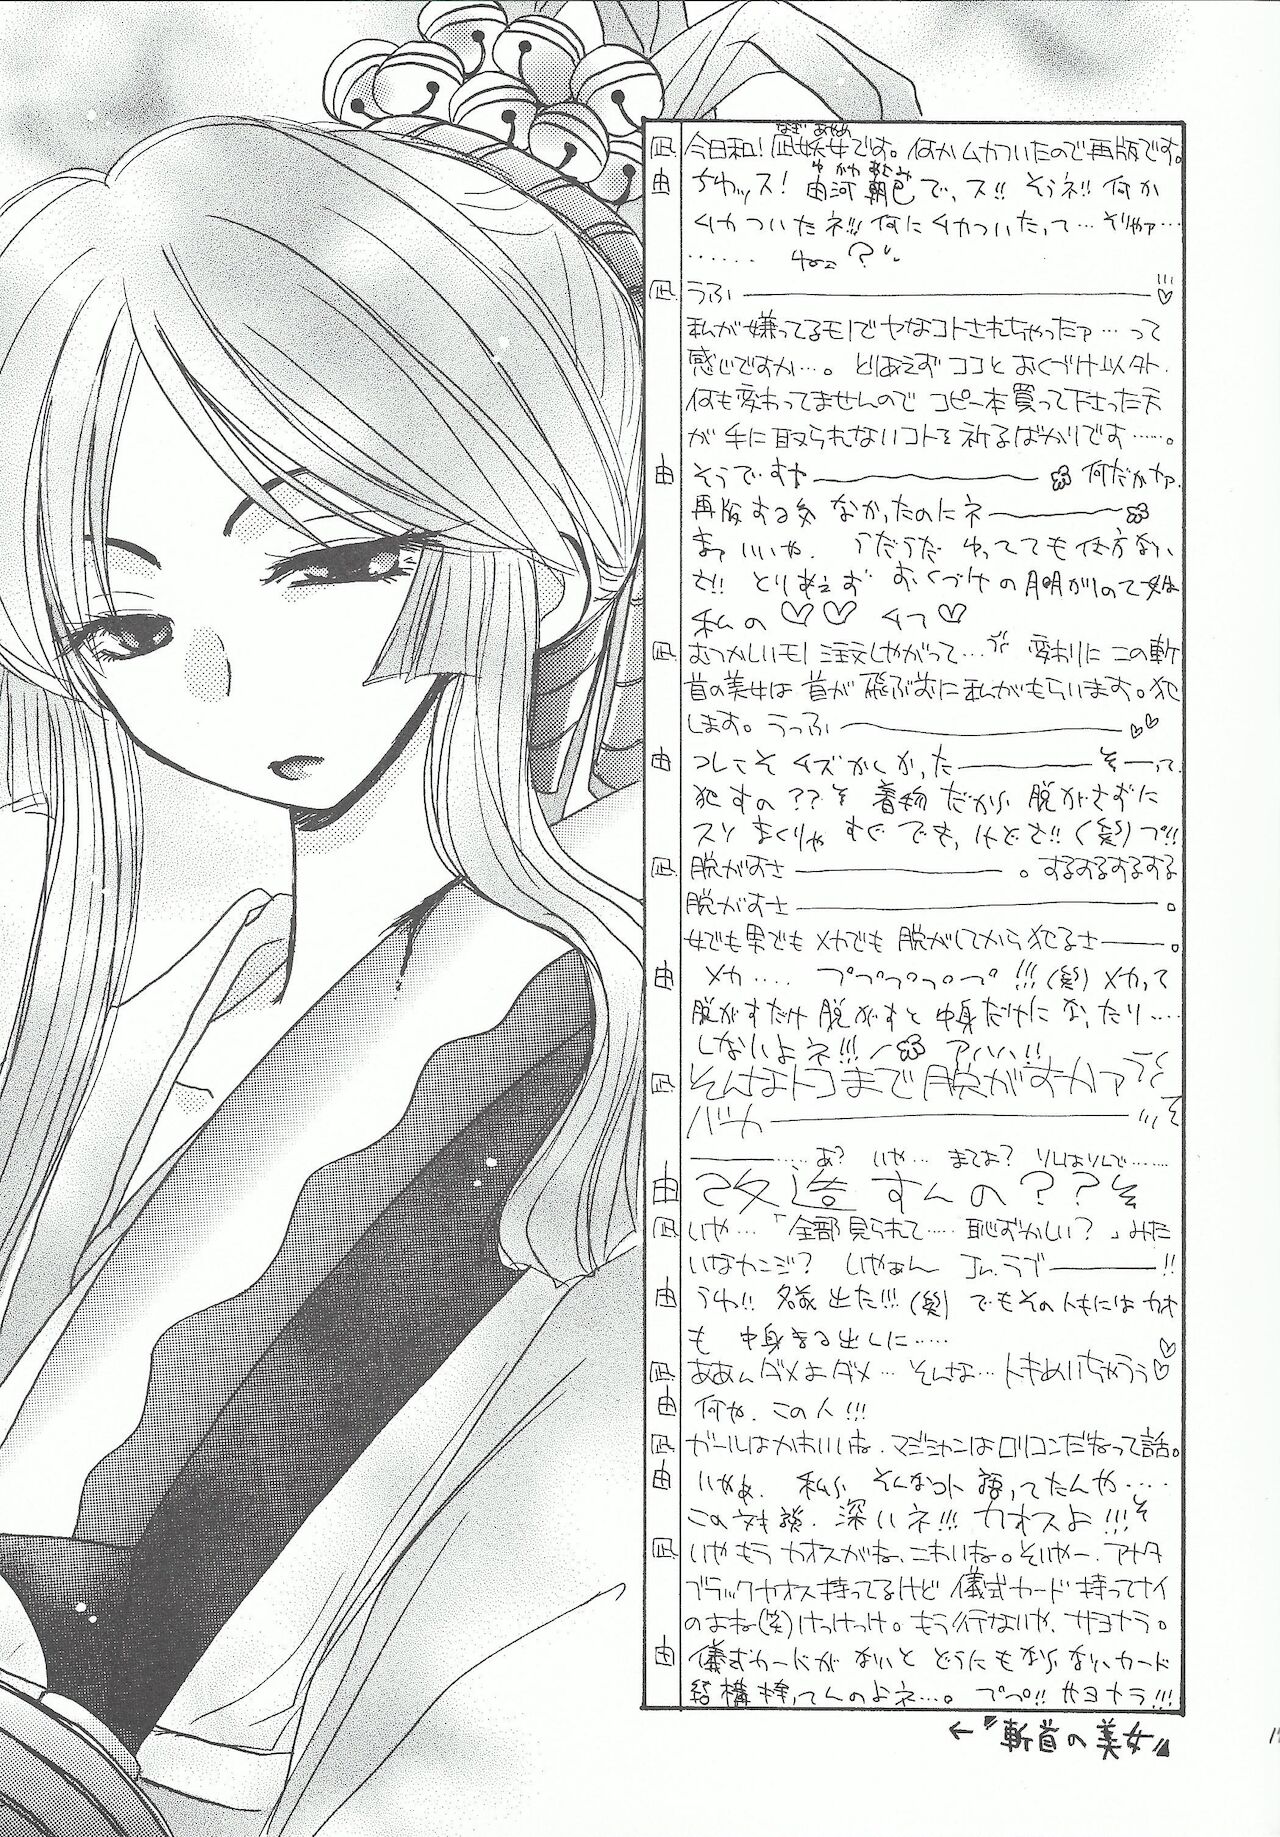 凪 今日和!凪妖女です。何かムカついたので再版です。
なぎ あやめ
由 ちわッス! 由河朝巳で、ス!! そうネ!! 何か
ゆかわ あさみ
ムカついたネ!!! 何にムカついたって…そりゃァ…
……
凪 うふ――♡
私が嫌ってるモノでヤなコトされちゃったァ…って
感じですか…。とりあえず ココと おくづけ以外、
何も変わってませんので コピー本買って下さった天
が 手に取られないコトを祈るばかりです……。
由 そうですや―― 何だかナァ、
再版する気 なかったのにネ――
まァ いいや、 うだうだ ゆってても仕方ない
さ!! とりあえず おくづけの
私の ♡♡ ♡
凪 むつかしいモノ注文しやがって… 変わりに この斬
首の美女は 首が飛ぶ前に私がもらいます。犯
します。うっふ――♡♡
由 コレこそ ムズかしかった―― そーって、
犯すの?? 着物だから 脱がさずに
スソ まくりゃ すぐ でも、けどさ!! (笑) プ!!
凪 脱がすさ――。するするするする
脱がすさ――。
女でも男でも メカでも 脱がしてから 犯るさ――。
由 メカ…. プププププ!!! (笑) メカって
脱がすだけ 脱がすと 中身だけに なったり….
しないよネ!!! アハハ!!
凪 そんなトコまで脱がすかァ
バカ――
――……あ? いや… まてよ? りんはりんで……
由 改造 すんの??
凪 いや…「全部見られて…. 恥ずかしい?」みた
いなカンジ? いやぁん Jr.ラブ――!!
由 うわ!! 名前 出た!!! (笑) でもそのトモにはカオ
も 中身まる出しに…..
凪 ああんダメよダメ… そんな…トキめいちゃうぅ♡
由 何や、この人!!!
凪 ガールはかわいいね、マジシャンはロリコンだねって話。
由 いやぁ、 私ら そんなコト 語ってたんや….
この対談、深いネ!!! カオスよ!!!
凪 いやもう カオスがね、こわいね。そいやー、アナタ
ブラックカオス持ってるけど 儀式カード持ってナイ
のよね(笑)けっけっけ。もう行ないや、サヨナラ。
由 儀式カードがないと どうにもならないカード
結構持ってんのよネ…。ププ!! サヨナラ!!!
←『斬首の美女』